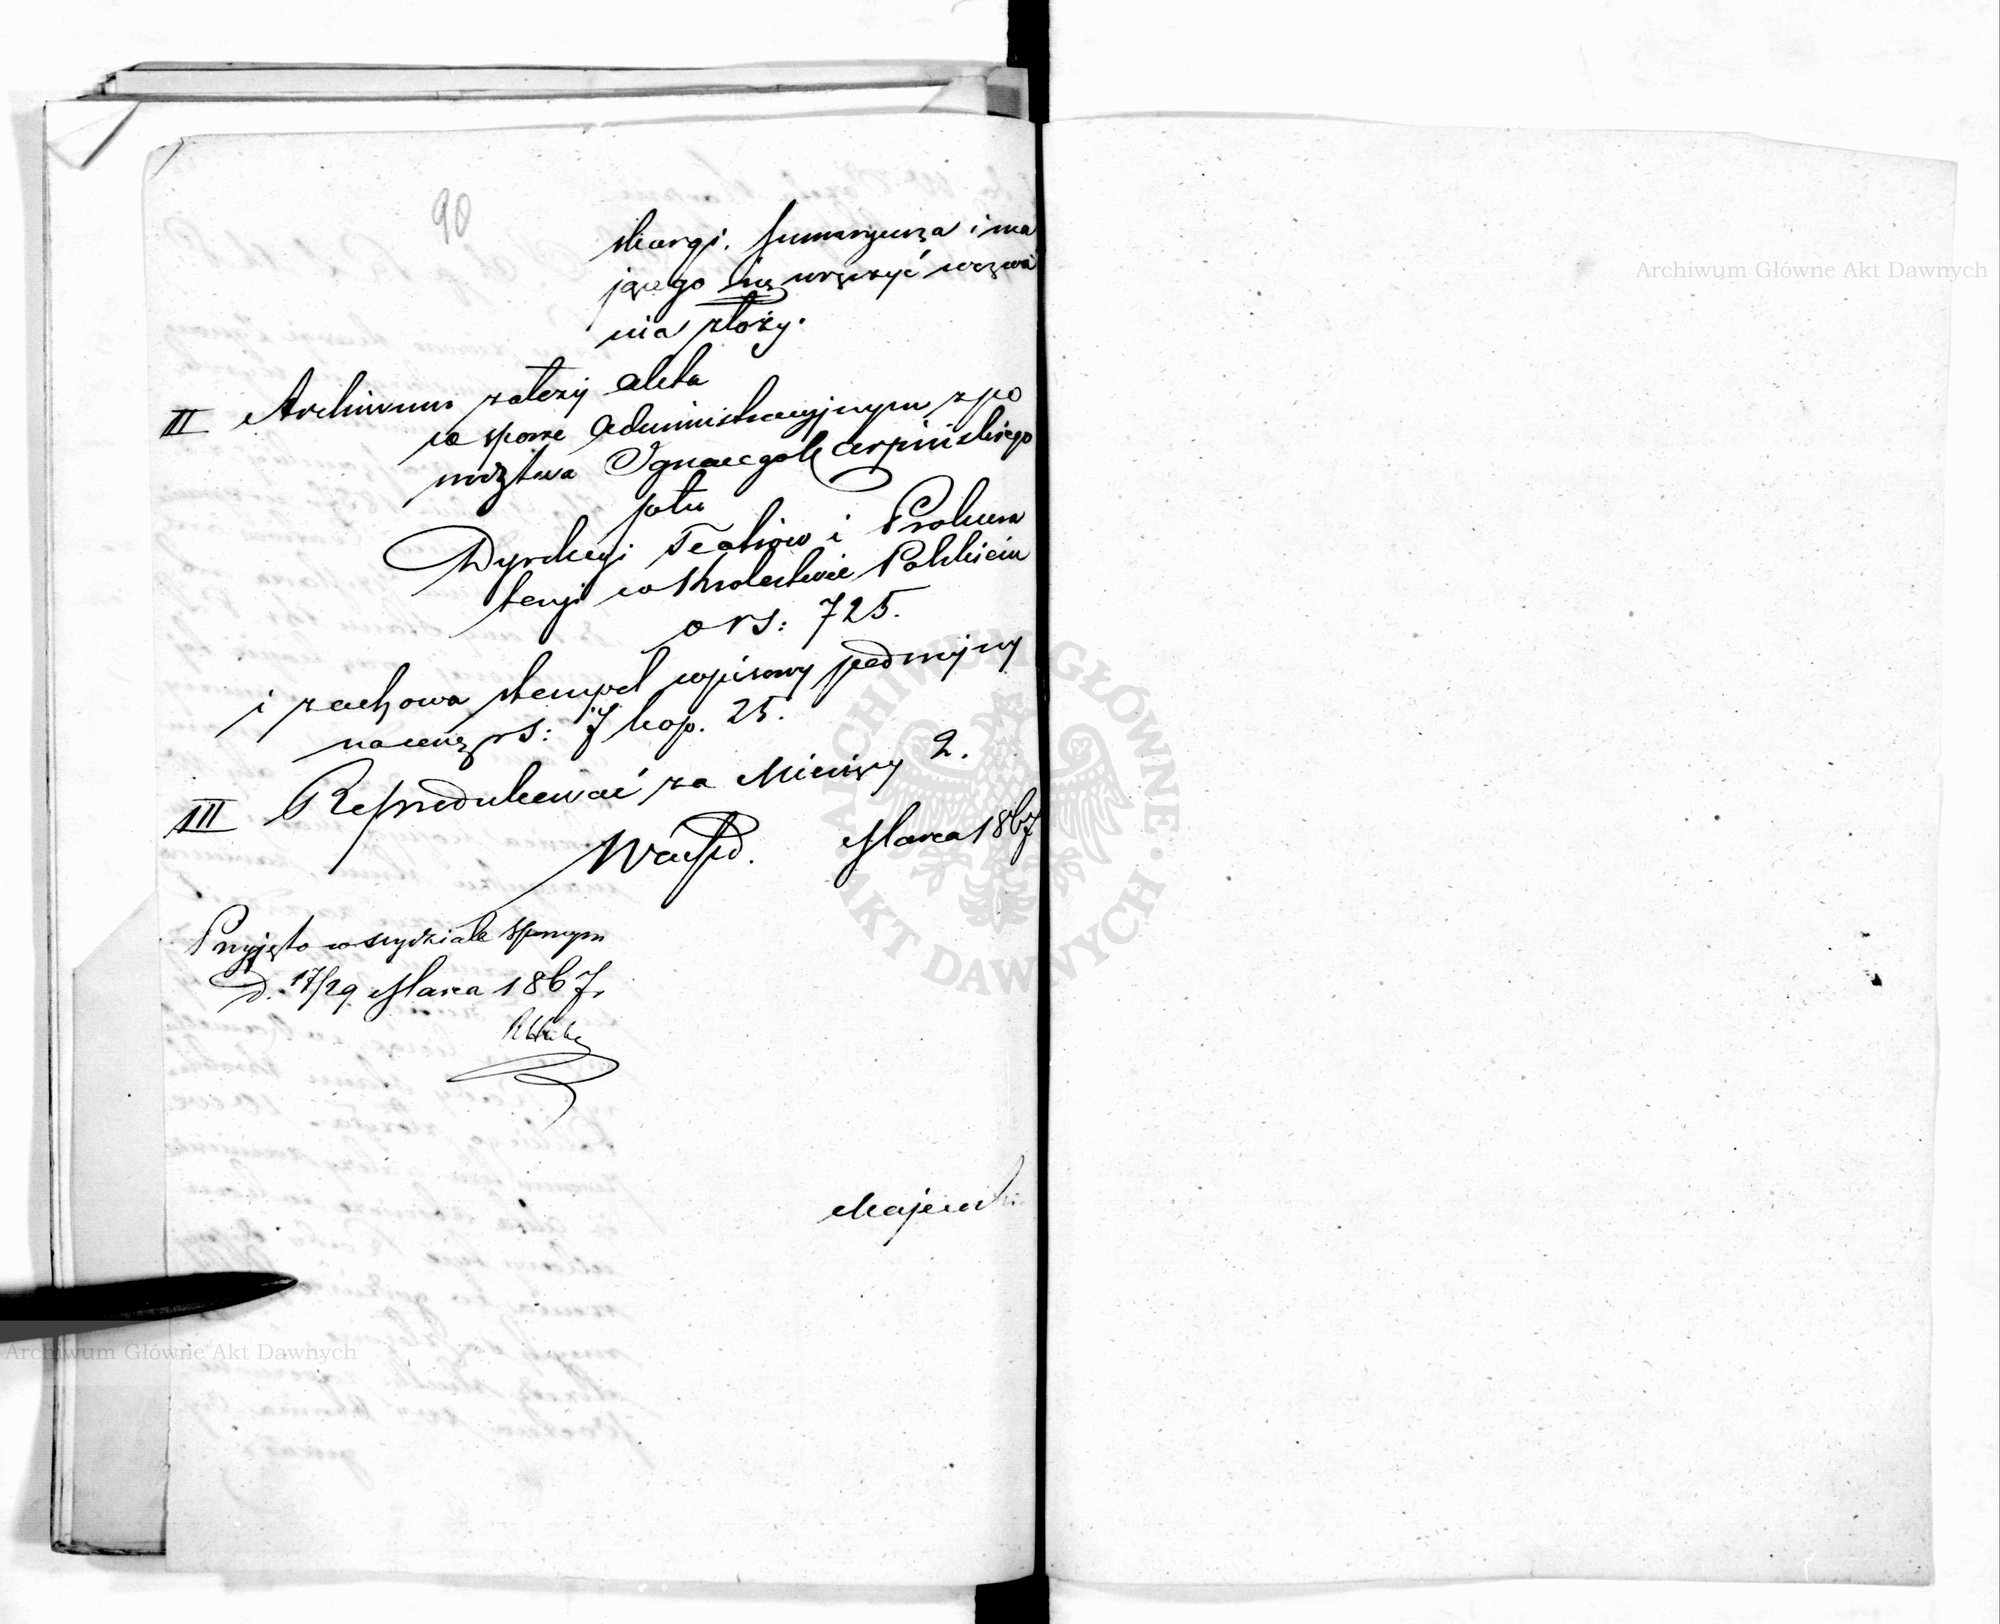 90
skargi, sumaryusza i ma
jącego się wręczyć wezwa
nia złoży.
II Archiwum założy akta
w sporze Administracyjnym z po
wództwa Ignacego
pko
Dyrekcyi Teatrów i Prokura
toryi w Królestwie Polskiem
o rs: 725.
i zachowa stempel wpisowy podwójny
na cenę rs: 7 kop. 25.
III Reprodukować za Miesięcy 2.
Marca 1867
Przyjęto w wydziale spornym
d. 17/29 Marca 1867 r.
Majewski
Archiwum Główne Akt Dawnych
Archiwum Główne Akt Dawnych
ARCHIWUM GŁÓWNE AKT DAWNYCH